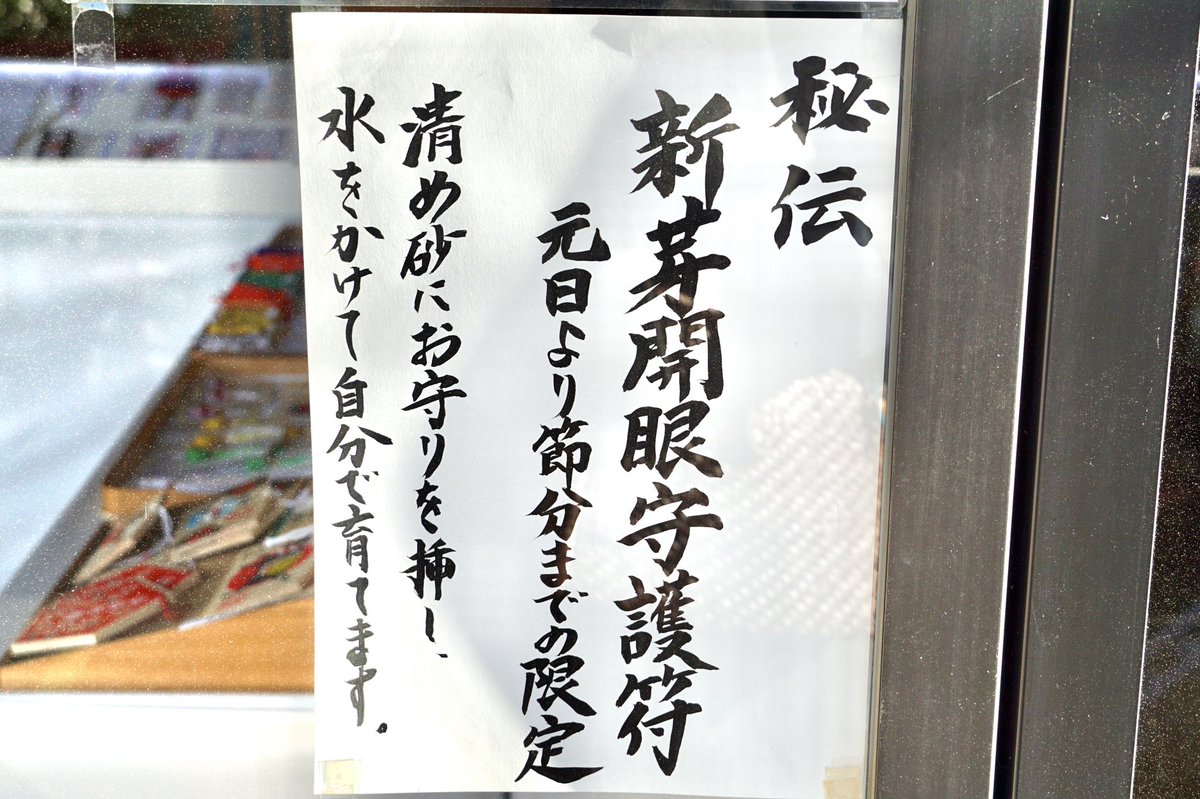 秘伝
新芽開眼守護符
元日より節分までの限定
清め砂にお守りを挿し、
水をかけて自分で育てます。